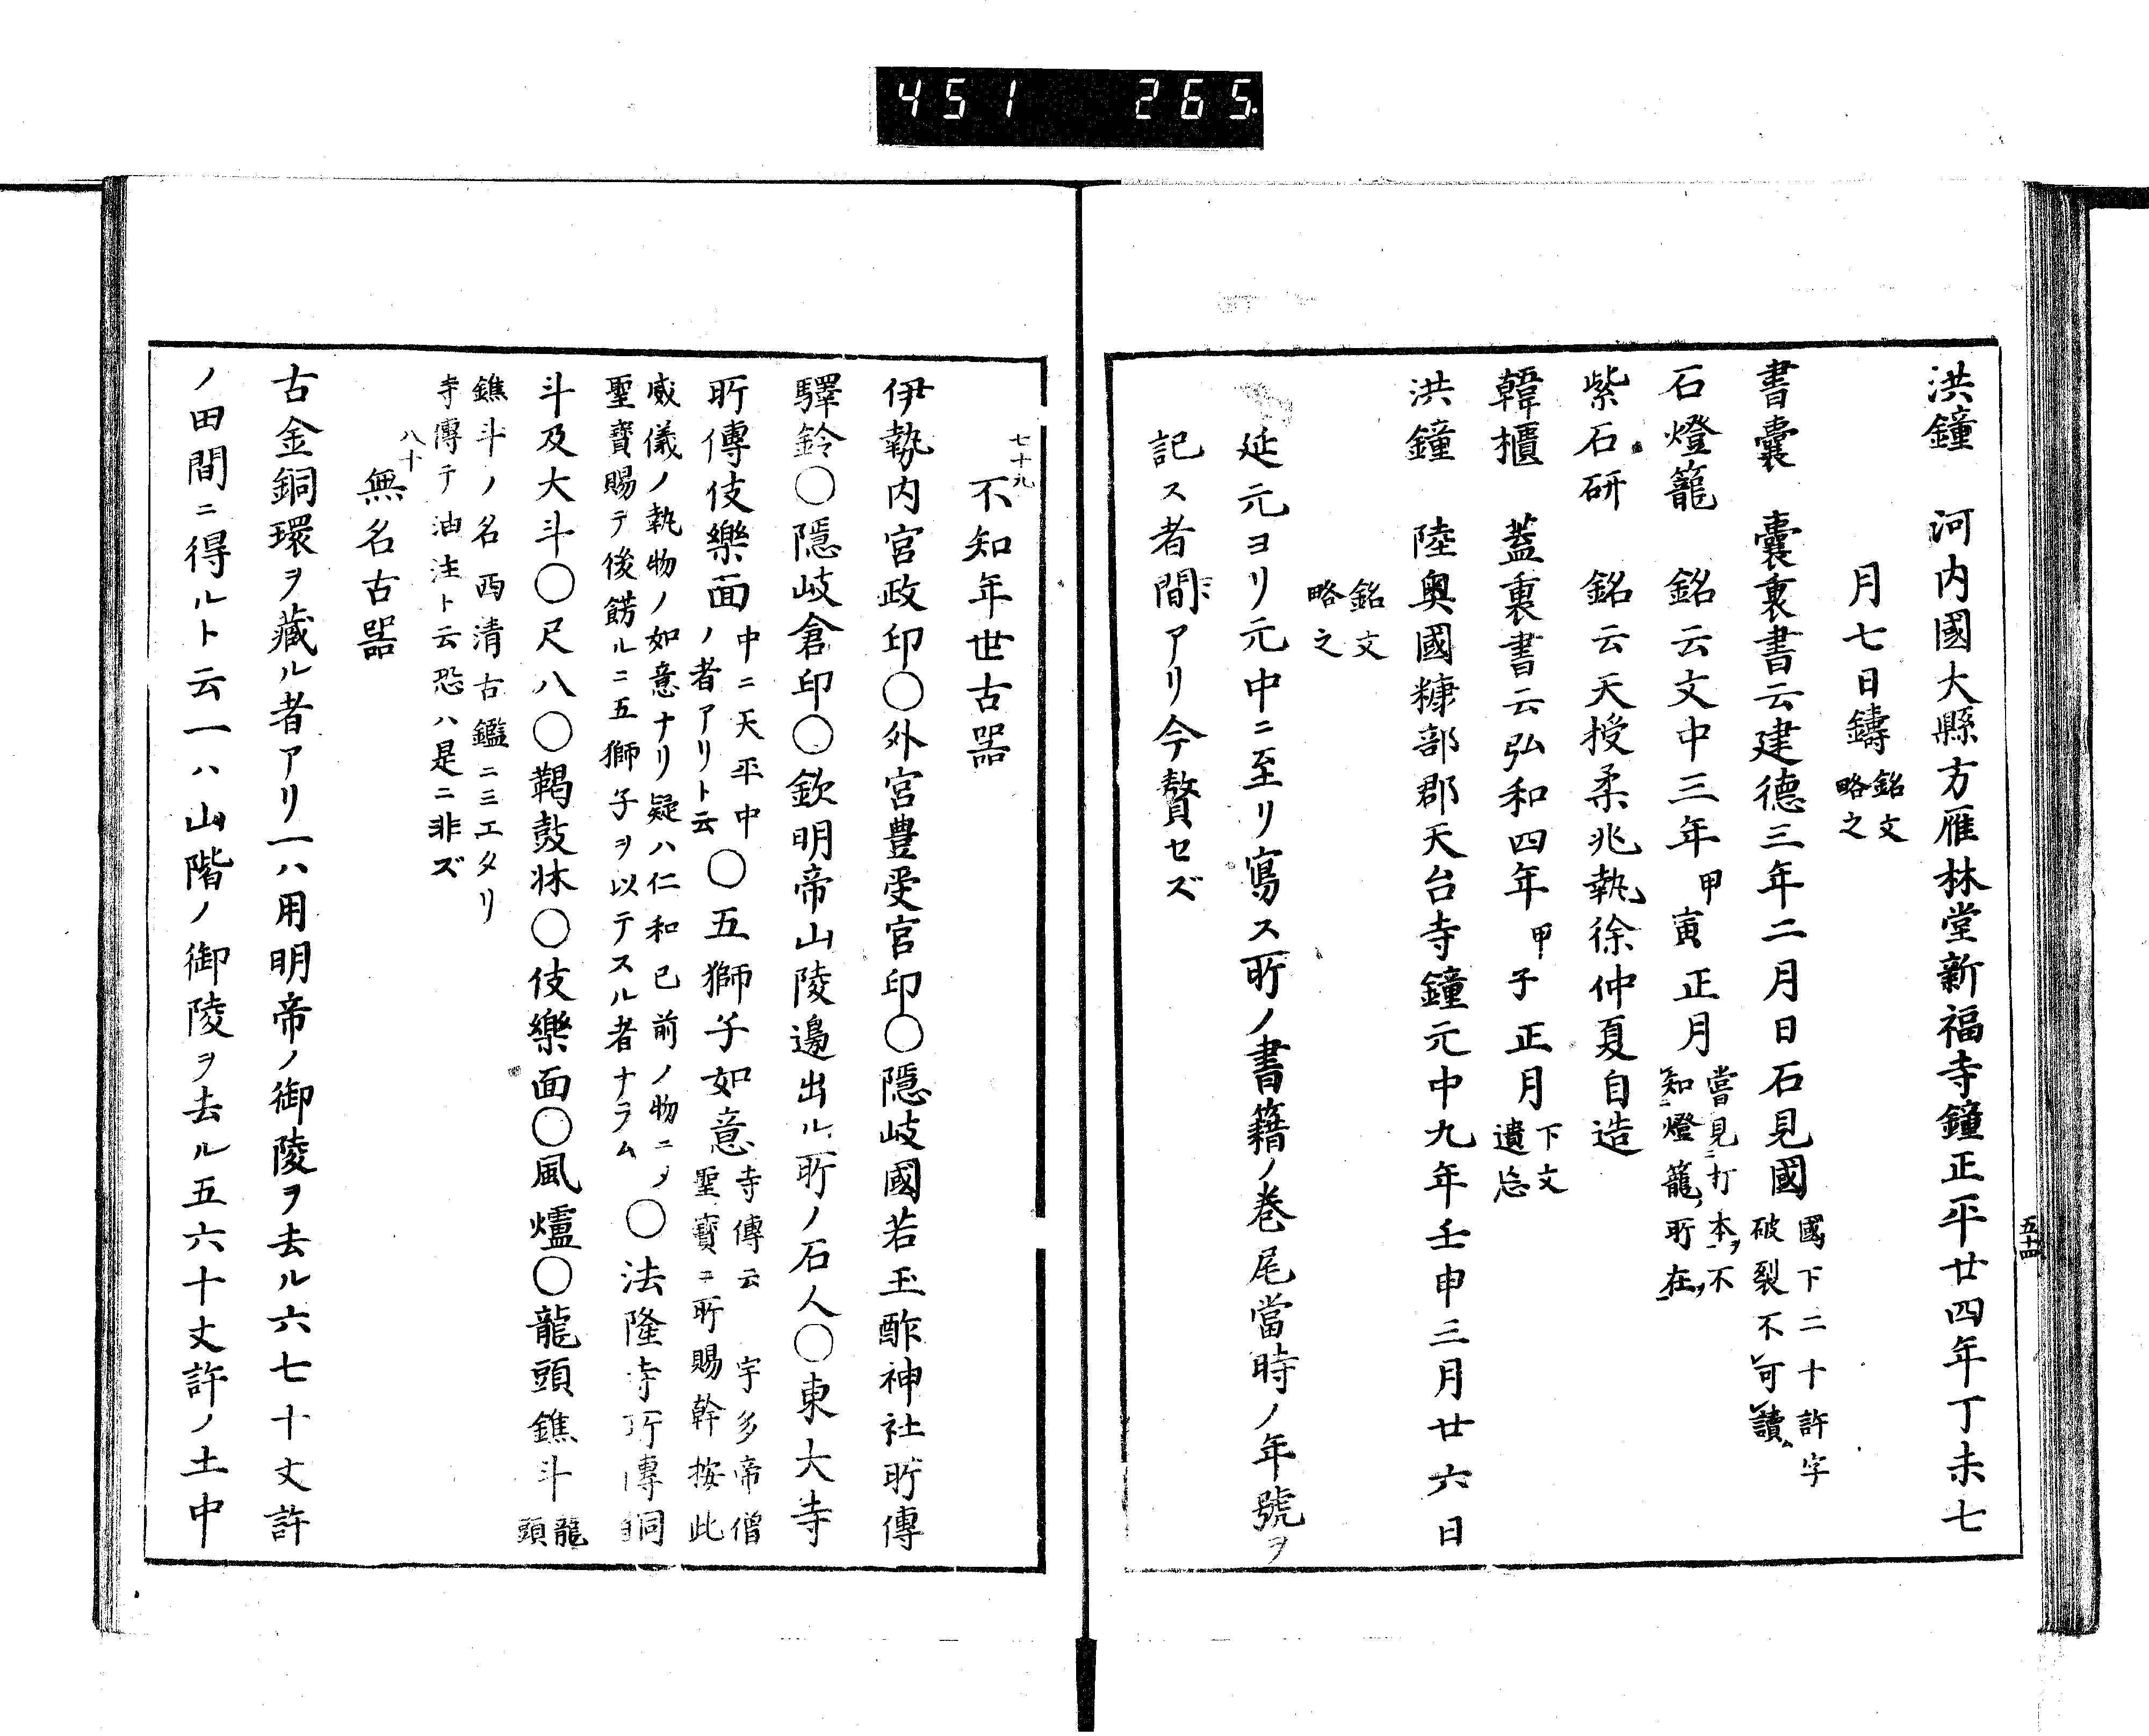 451 265
五十四
洪鐘 河内國大縣方雁林堂新福寺鐘正平廿四年丁未七
月七日鑄 銘文
略之
書嚢 嚢裏書云建德三年二月日石見國 國下二十許字
破裂不可讀
石燈籠 銘云文中三年甲寅正月 嘗見打本ヲ不
知燈籠ノ所在ヲ
紫石研 銘云天授柔兆執徐仲夏自造
韓櫃 蓋裏書云弘和四年甲子正月 下文
遺忘
洪鐘 陸奧國糠部郡天台寺鐘元中九年壬申三月廿六日
銘文
略之
延元ヨリ元中ニ至リ寫ス所ノ書籍ノ卷尾當時ノ年號ヲ
記ス者間アリ今贅セズ
七十九
不知年世古器
伊勢内宮政印〇外宮豊受宮印〇隱岐國若玉酢神社所傳
驛鈴〇隱岐倉印〇欽明帝山陵邊出ル所ノ石人〇東大寺
所傳伎樂面 中ニ天平中
ノ者アリト云 〇五獅子如意 寺傳云 宇多帝僧
聖寶ニ所賜幹按此
威儀ノ執物ノ如意ナリ疑ハ仁和已前ノ物ニ〆
聖寶賜テ後餝ルニ五獅子ヲ以テスル者ナラム 〇法隆寺所傳銅
斗及大斗〇尺八〇鞨鼓牀〇伎樂面〇風爐〇龍頭鐎斗 龍
頭
鐎斗ノ名西清古鑑ニミエタリ
寺傳テ油注ト云恐ハ是ニ非ズ
八十
無名古器
古金銅環ヲ藏ル者アリ一ハ用明帝ノ御陵ヲ去ル六七十丈許
ノ田間ニ得ルト云一ハ山階ノ御陵ヲ去ル五六十丈許ノ土中